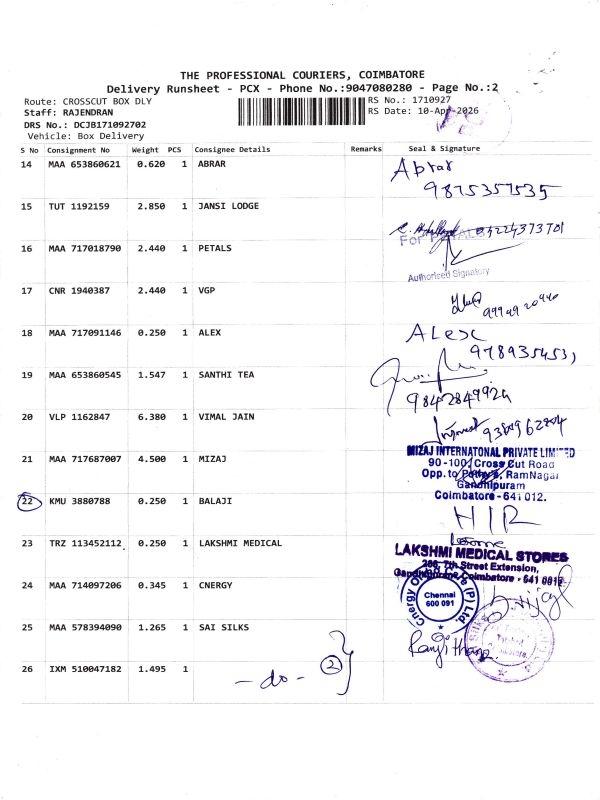 THE PROFESSIONAL COURIERS, COIMBATORE
Delivery Runsheet - PCX - Phone No.:9047080280 - Page No.:2
Route: CROSSCUT BOX DLY
RS No.: 1710927
Staff: RAJENDRAN
RS Date: 10-Apr-2026
DRS No.: DCJB171092702
Vehicle: Box Delivery
S No Consignment No Weight PCS Consignee Details Remarks Seal & Signature
14 MAA 653860621 0.620 1 ABRAR Abrar
9875357535
15 TUT 1192159 2.850 1 JANSI LODGE
16 MAA 717018790 2.440 1 PETALS For PETALS
Authorised Signatory
17 CNR 1940387 2.440 1 VGP
18 MAA 717091146 0.250 1 ALEX ALEX
19 MAA 653860545 1.547 1 SANTHI TEA
20 VLP 1162847 6.380 1 VIMAL JAIN
21 MAA 717687007 4.500 1 MIZAJ MIZAJ INTERNATONAL PRIVATE LIMITED
90-100, Cross Cut Road
Opp. to RamNagar
Gandhipuram
Coimbatore - 641 012.
22 KMU 3880788 0.250 1 BALAJI
23 TRZ 113452112 0.250 1 LAKSHMI MEDICAL LAKSHMI MEDICAL STORES
7th Street Extension,
Gandhipuram, Coimbatore - 641 0012
24 MAA 714097206 0.345 1 CNERGY Chennai
600 091
25 MAA 578394090 1.265 1 SAI SILKS
26 IXM 510047182 1.495 1 - do - 2